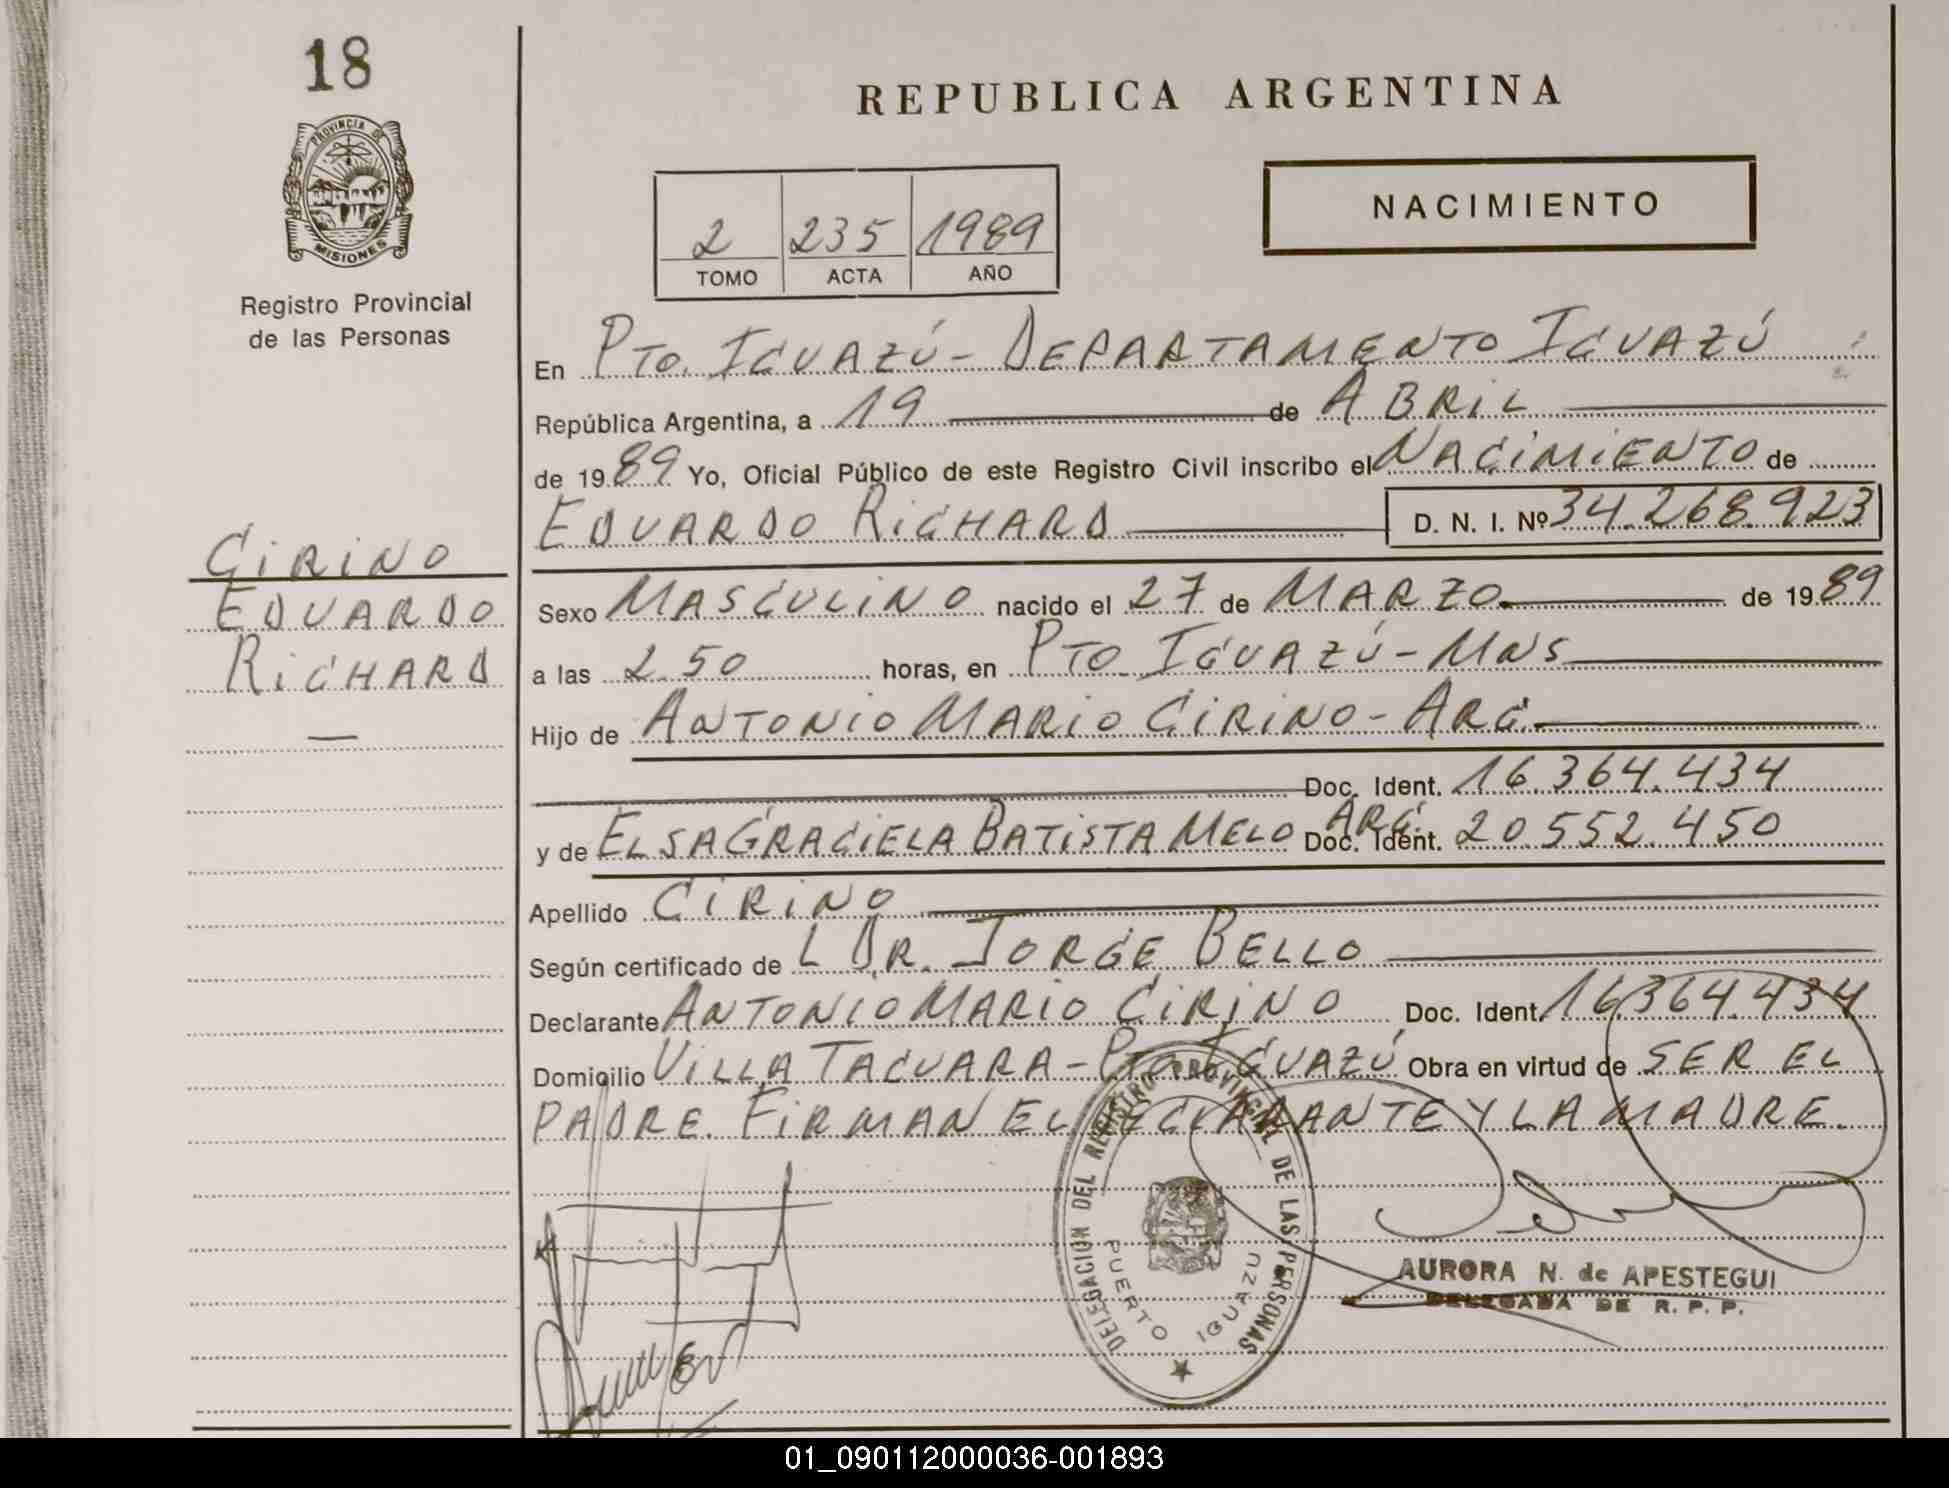 18
REPUBLICA ARGENTINA
PROVINCIA DE
MISIONES
Registro Provincial
de las Personas
2 235 1989
TOMO ACTA AÑO
NACIMIENTO
En PTO. IGUAZÚ - DEPARTAMENTO IGUAZÚ
República Argentina, a 19 de ABRIL
de 1989 Yo, Oficial Público de este Registro Civil inscribo el NACIMIENTO de
EDUARDO RICHARD D. N. I. Nº 34.268.923
CIRINO
EDUARDO
RICHARD
—
Sexo MASCULINO nacido el 27 de MARZO de 1989
a las 2.50 horas, en PTO. IGUAZÚ - MNS
Hijo de ANTONIO MARIO CIRINO - ARG.
Doc. Ident. 16.364.434
y de ELSA GRACIELA BATISTA MELO ARG. Doc. Ident. 20.552.450
Apellido CIRINO
Según certificado de L DR. JORGE BELLO
Declarante ANTONIO MARIO CIRINO Doc. Ident. 16.364.434
Domicilio VILLA TACUARA - PTO. IGUAZÚ Obra en virtud de SER EL
PADRE. FIRMAN EL DECLARANTE Y LA MADRE.
DELEGACION DEL REGISTRO PROVINCIAL DE LAS PERSONAS
PUERTO IGUAZU
AURORA N. de APESTEGUI
DELEGADA DE R. P. P.
01_090112000036-001893